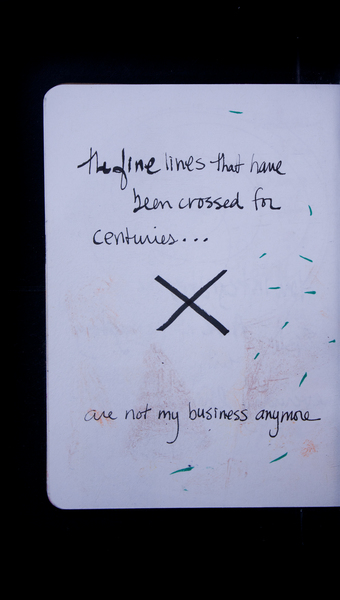 the fine lines that have
been crossed for
centuries...
X
are not my business anymore